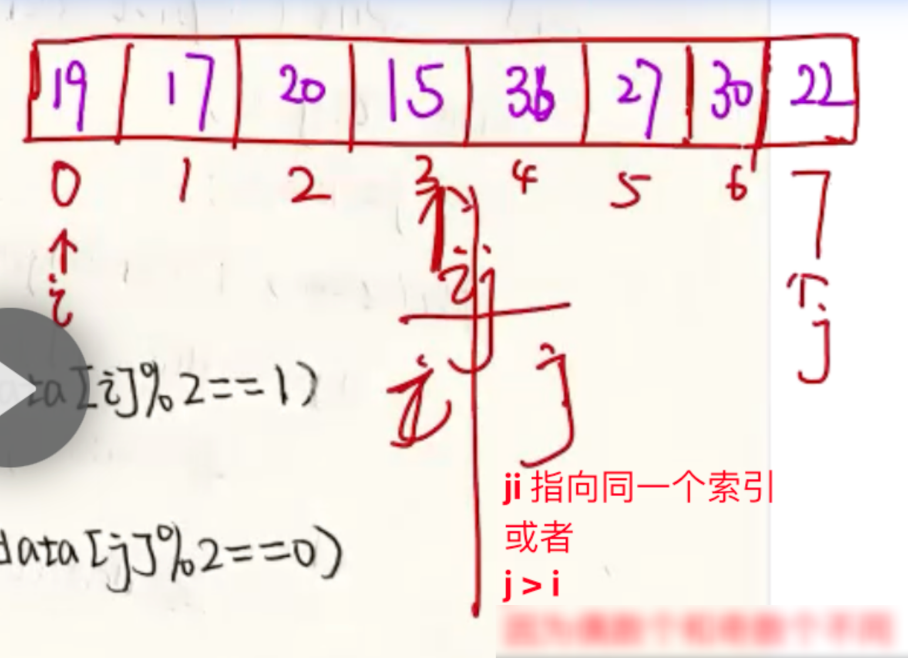 19 17 20 15 36 27 30 22
0 1 2 3 4 5 6 7
i ij j
i j
ata[i]%2==1)
data[j]%2==0)
ji 指向同一个索引
或者
j > i